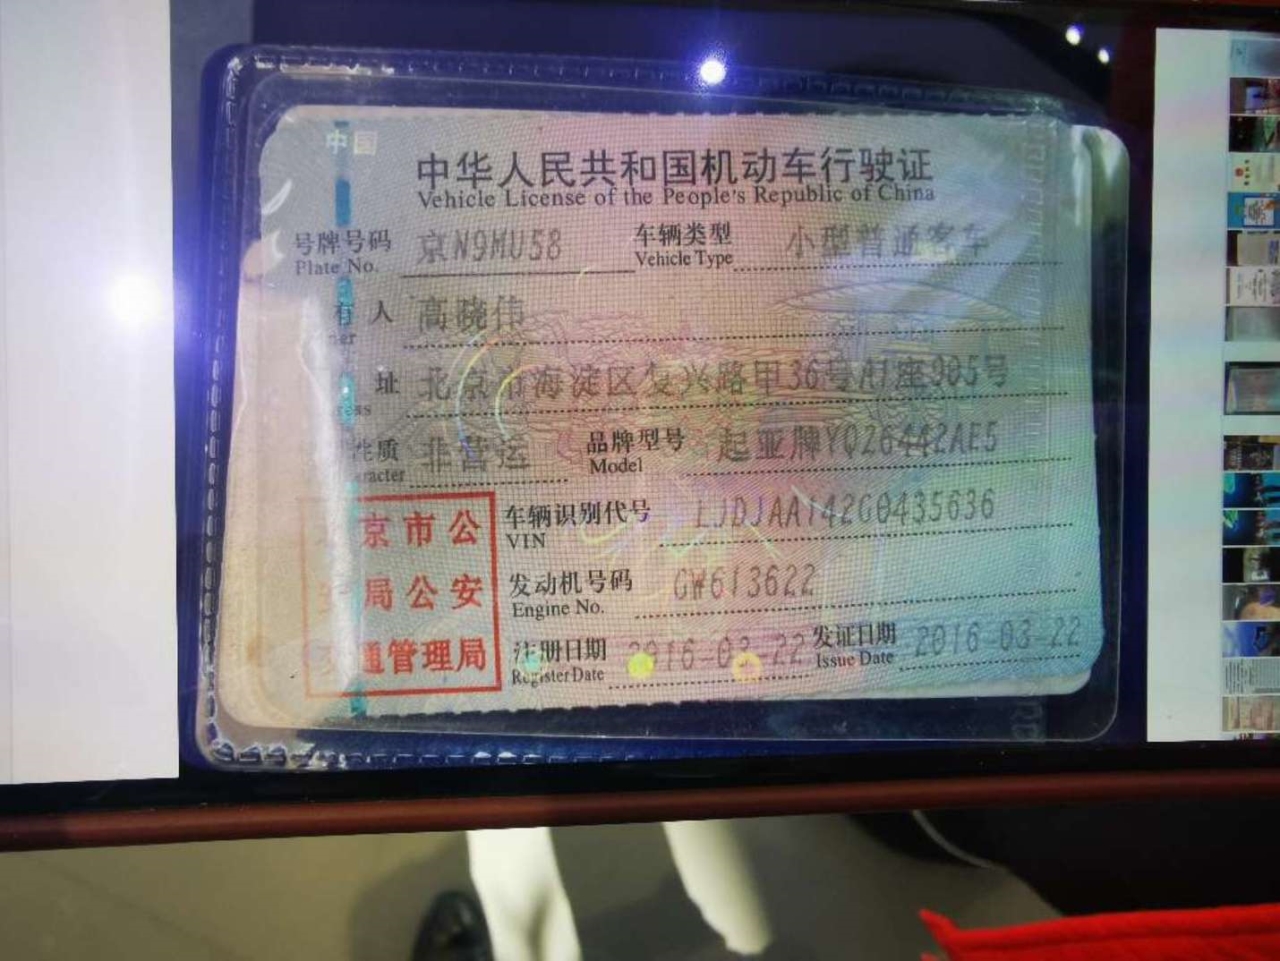 中国
中华人民共和国机动车行驶证
Vehicle License of the People's Republic of China
号牌号码 京N9MU58 车辆类型 小型普通客车
Plate No. Vehicle Type
有人 高晓伟
ner
址 北京市海淀区复兴路甲36号A1座905号
ress
性质 非营运 品牌型号 起亚牌YQZ6442AE5
aracter Model
京市公
安局公安
交通管理局
车辆识别代号 LJDJAA142G0435636
VIN
发动机号码 GW613622
Engine No.
注册日期 2016-03-22 发证日期 2016-03-22
Register Date Issue Date